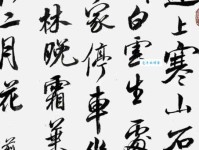 上寒山石
白雲生處
家停車坐
林晚霜葉
二月花